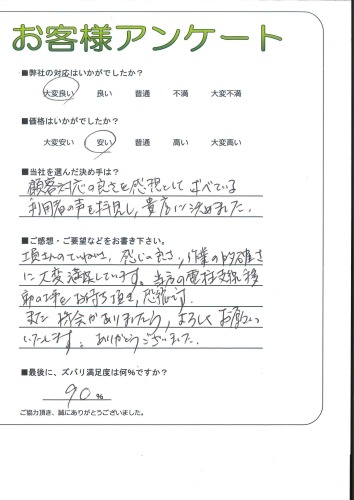 お客様アンケート
■弊社の対応はいかがでしたか?
大変良い 良い 普通 不満 大変不満
■価格はいかがでしたか?
大変安い 安い 普通 高い 大変高い
■当社を選んだ決め手は?
顧客対応の良さを感想として述べている
利用者の声を拝見し,貴店に決めました.
■ご感想・ご要望などをお書き下さい。
感じの良さ,作業の的確さ
に大変満足しています。当方の電柱支線移
お待ち頂き,恐縮です.
また機会がありましたら,よろしくお願い
いたします。ありがとうございました.
■最後に、ズバリ満足度は何%ですか?
90%
ご協力頂き、誠にありがとうございました。